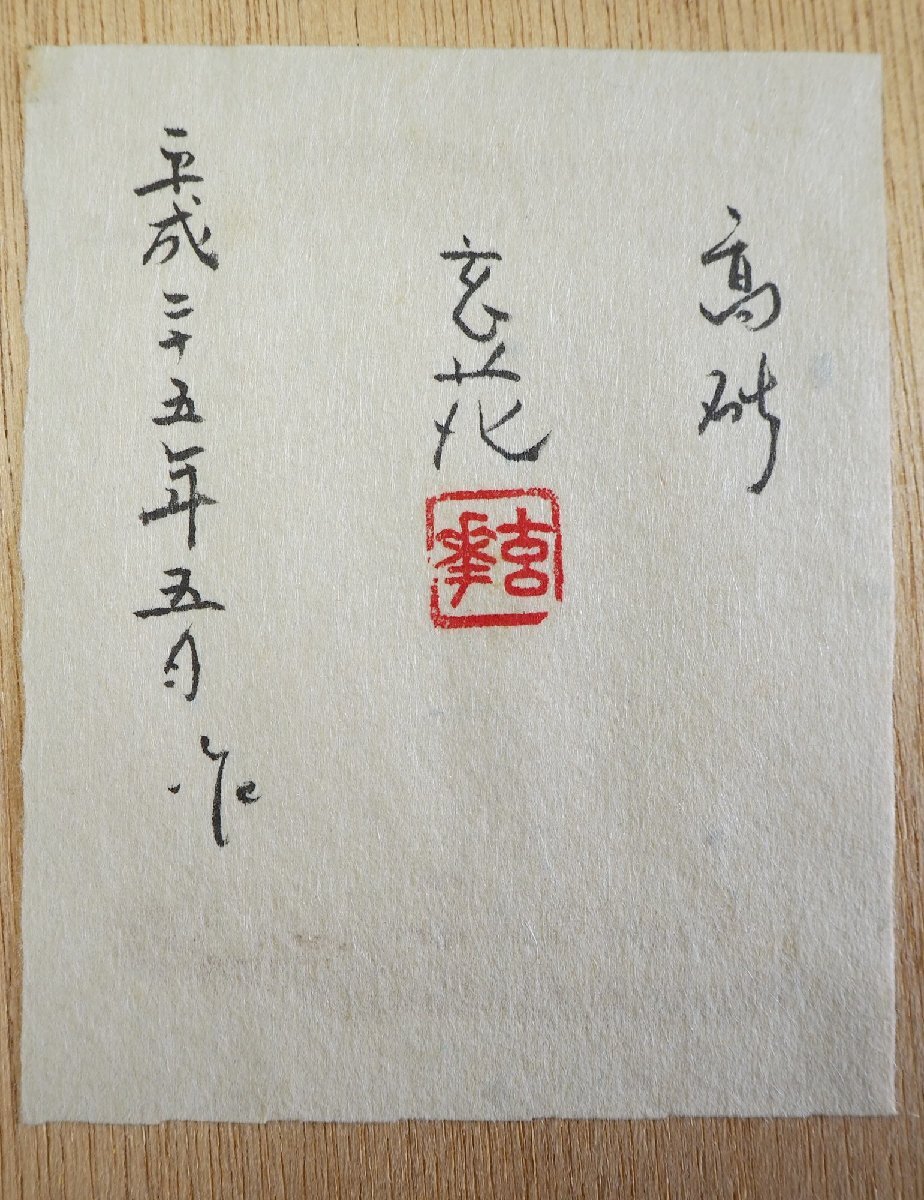 高砂
玄花
玄華
平成二十五年五月 作